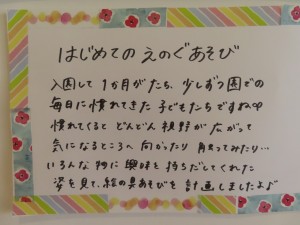 はじめての えのぐあそび
入園して 1か月がたち、少しずつ園での
毎日に慣れてきた 子どもたちですね♡
慣れてくると どんどん 視野が 広がって
気になるところへ 向かったり 触ってみたり…
いろんな 物に 興味を 持ちだしてくれた
姿を見て、絵の具あそびを 計画しましたよ♪